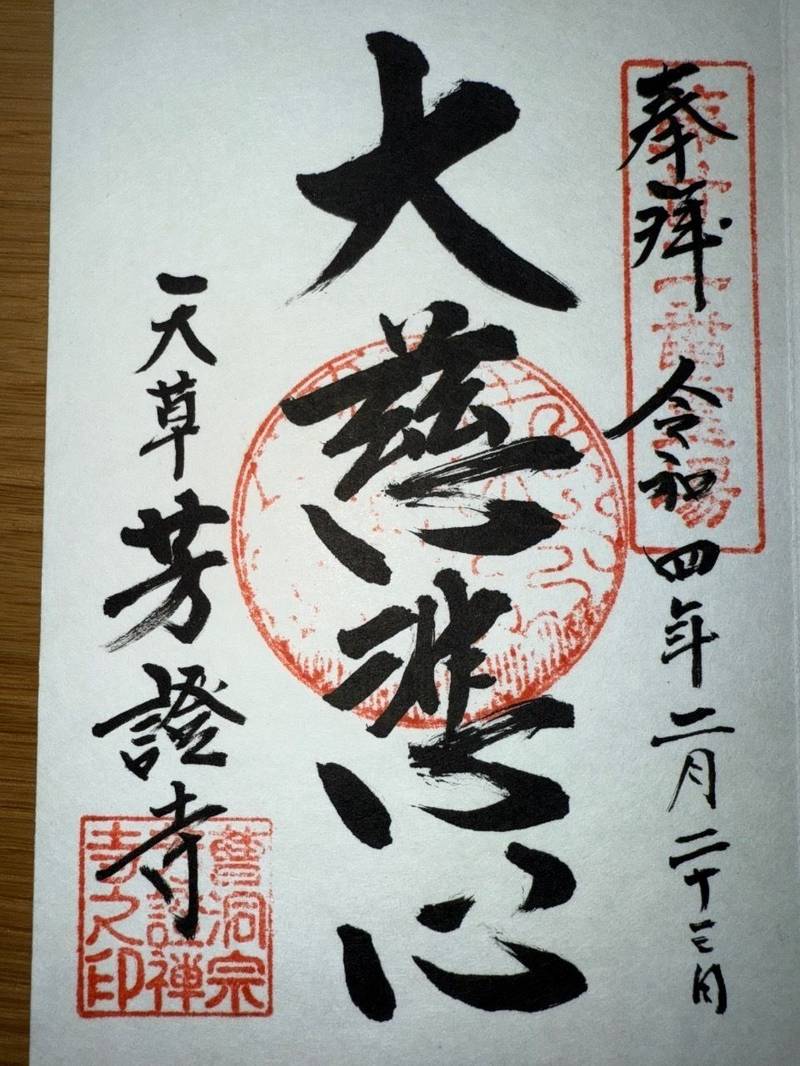 奉拝 令和四年二月二十三日
大慈悲心
天草 芳證寺
曹洞宗
芳證禅
寺之印